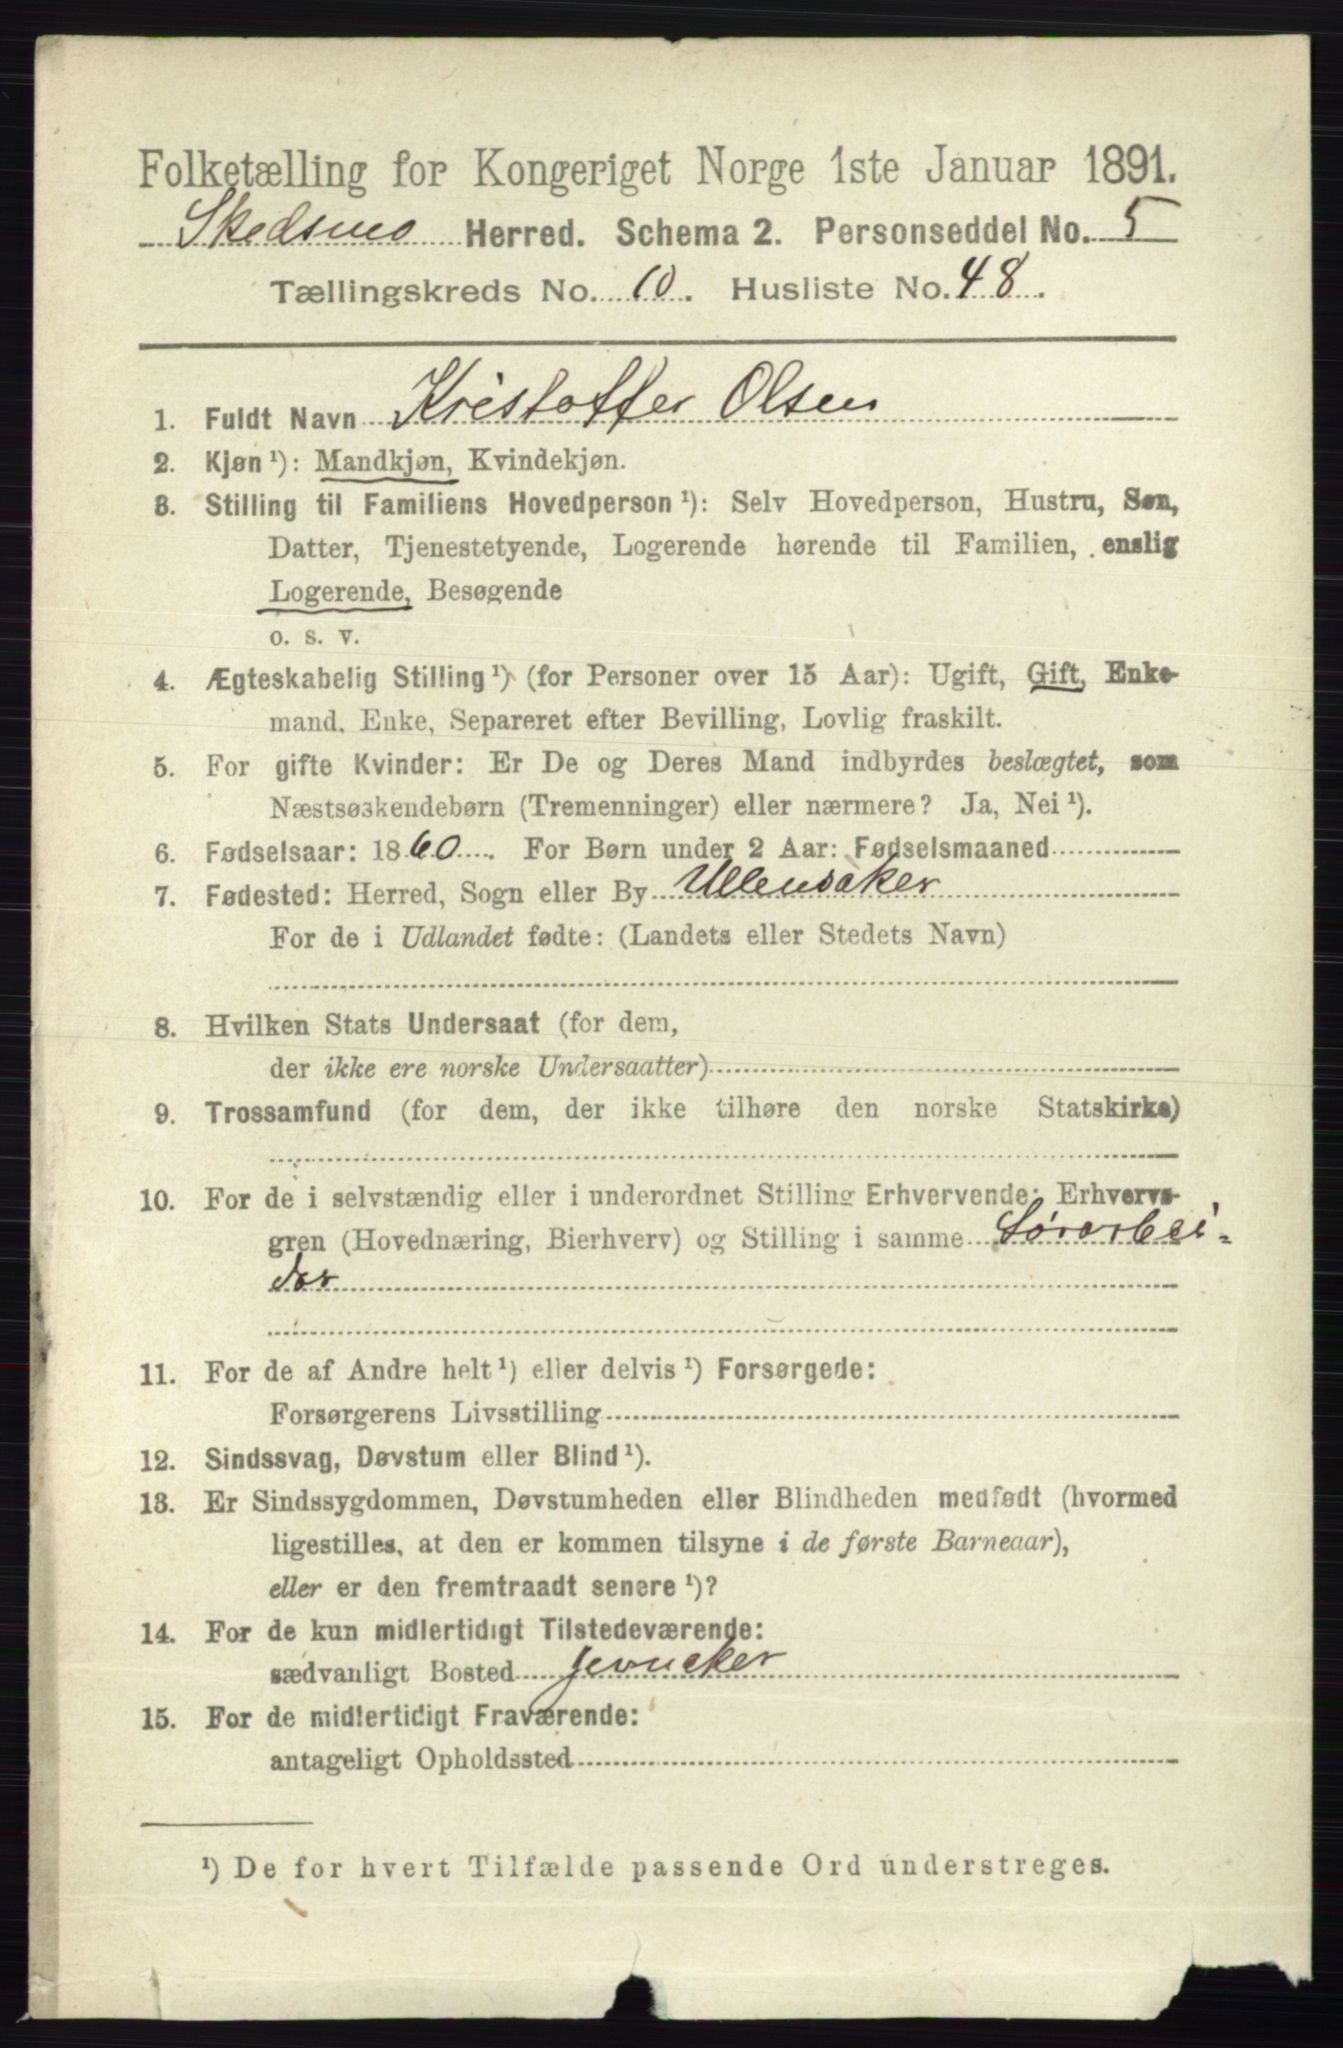 Folketælling for Kongeriget Norge 1ste Januar 1891.
Skedsmo Herred. Schema 2. Personseddel No. 5
Tællingskreds No. 10. Husliste No. 48.
1. Fuldt Navn Kristoffer Olsen
2. Kjøn ¹): Mandkjøn, Kvindekjøn.
3. Stilling til Familiens Hovedperson ¹): Selv Hovedperson, Hustru, Søn,
Datter, Tjenestetyende, Logerende hørende til Familien, enslig
Logerende, Besøgende
o. s. v.
4. Ægteskabelig Stilling ¹) (for Personer over 15 Aar): Ugift, Gift, Enke-
mand, Enke, Separeret efter Bevilling, Lovlig fraskilt.
5. For gifte Kvinder: Er De og Deres Mand indbyrdes beslægtet, som
Næstsøskendebørn (Tremenninger) eller nærmere? Ja, Nei ¹).
6. Fødselsaar: 1860. For Børn under 2 Aar: Fødselsmaaned
7. Fødested: Herred, Sogn eller By Ullensaker
For de i Udlandet fødte: (Landets eller Stedets Navn)
8. Hvilken Stats Undersaat (for dem,
der ikke ere norske Undersaatter)
9. Trossamfund (for dem, der ikke tilhøre den norske Statskirke)
10. For de i selvstændig eller i underordnet Stilling Erhvervende: Erhvervs-
gren (Hovednæring, Bierhverv) og Stilling i samme
der
11. For de af Andre helt ¹) eller delvis ¹) Forsørgede:
Forsørgerens Livsstilling
12. Sindssvag, Døvstum eller Blind ¹).
13. Er Sindssygdommen, Døvstumheden eller Blindheden medfødt (hvormed
ligestilles, at den er kommen tilsyne i de første Barneaar),
eller er den fremtraadt senere ¹)?
14. For de kun midlertidigt Tilstedeværende:
sædvanligt Bosted Jevnaker
15. For de midlertidigt Fraværende:
antageligt Opholdssted
¹) De for hvert Tilfælde passende Ord understreges.